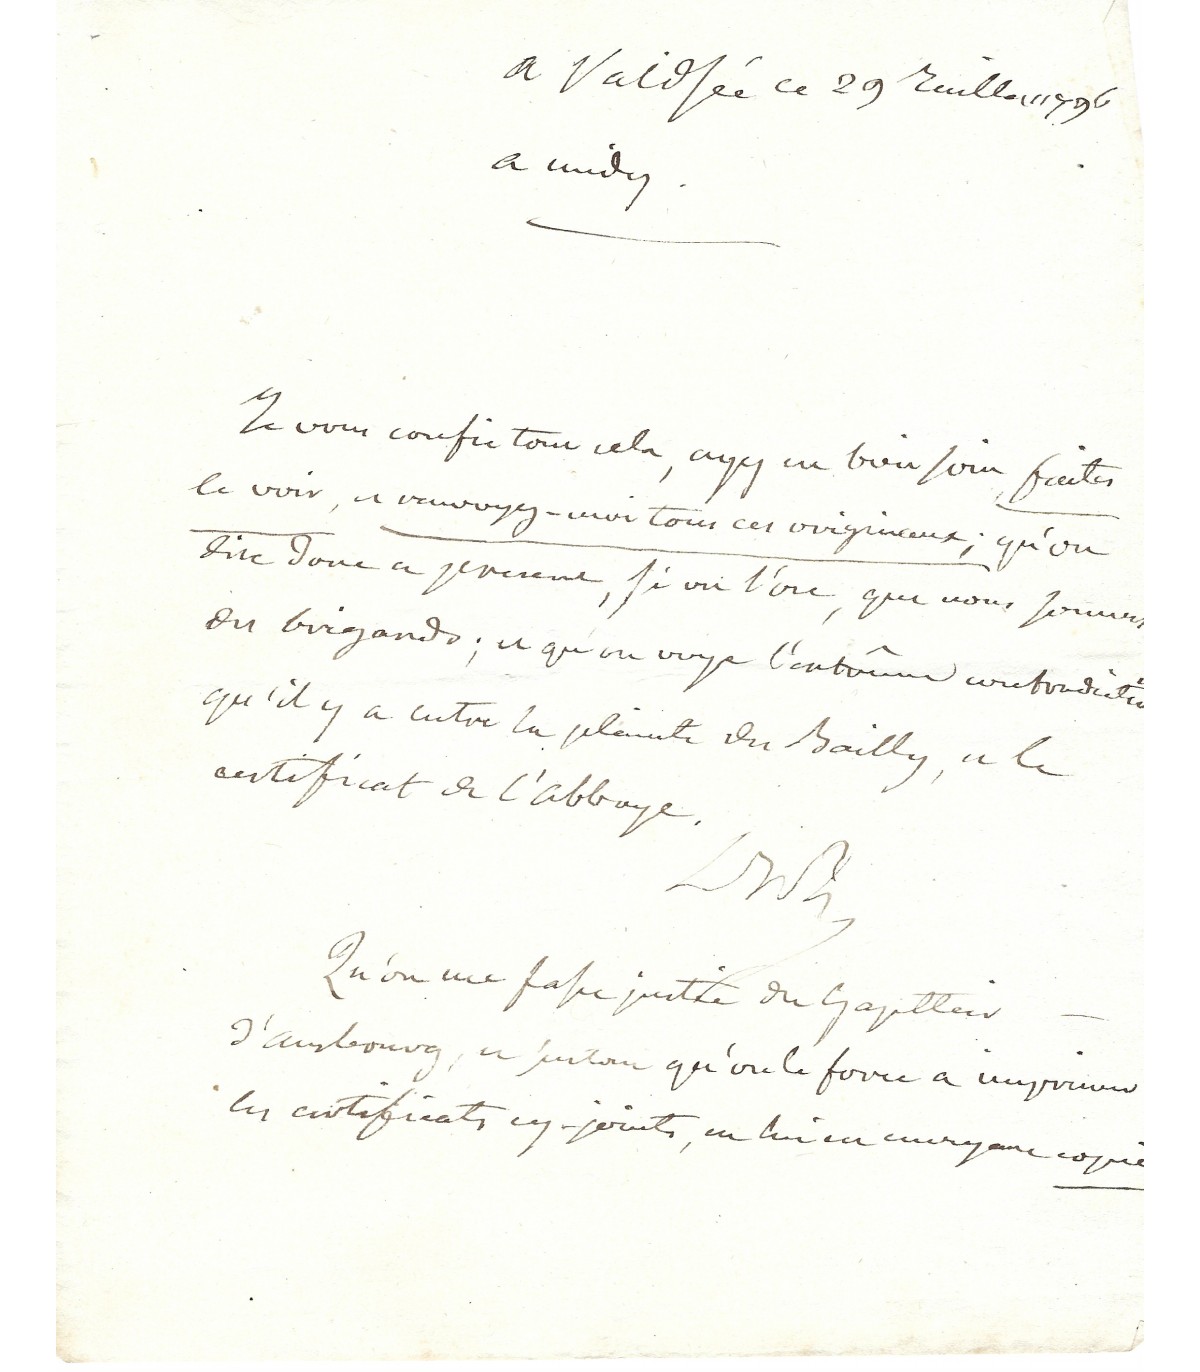 a Valdsée ce 29 Juillet 1796
a midy.
Je vous confie tout cela, ayez en bien soin, faites
le voir, et renvoyez-moi tous ces originaux; qu'on
dise donc a present, si on l'ose, que nous sommes
des brigands; et qu'on voye l'extrême contradictio
qu'il y a entre la plainte du Bailly, et le
certificat de l'Abbaye.
Qu'on me fasse justice du Gazettier
d'ausbourg, et surtout qu'on le force a imprimer
les certificats cy-joints, en lui en envoyant copie